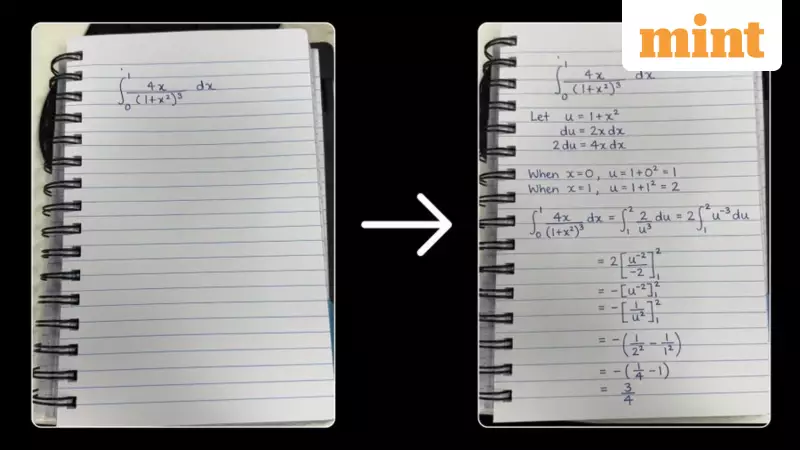 mint
∫₀¹ 4x/(1+x²)³ dx
∫₀¹ 4x/(1+x²)³ dx
Let u = 1+x²
du = 2x dx
2 du = 4x dx
When x=0, u = 1+0² = 1
When x=1, u = 1+1² = 2
∫₀¹ 4x/(1+x²)³ dx = ∫₁² 2/u³ du = 2∫₁² u⁻³ du
= 2[u⁻²/-2]₁²
= -[u⁻²]₁²
= -[1/u²]₁²
= -(1/2² - 1/1²)
= -(1/4 - 1)
= 3/4